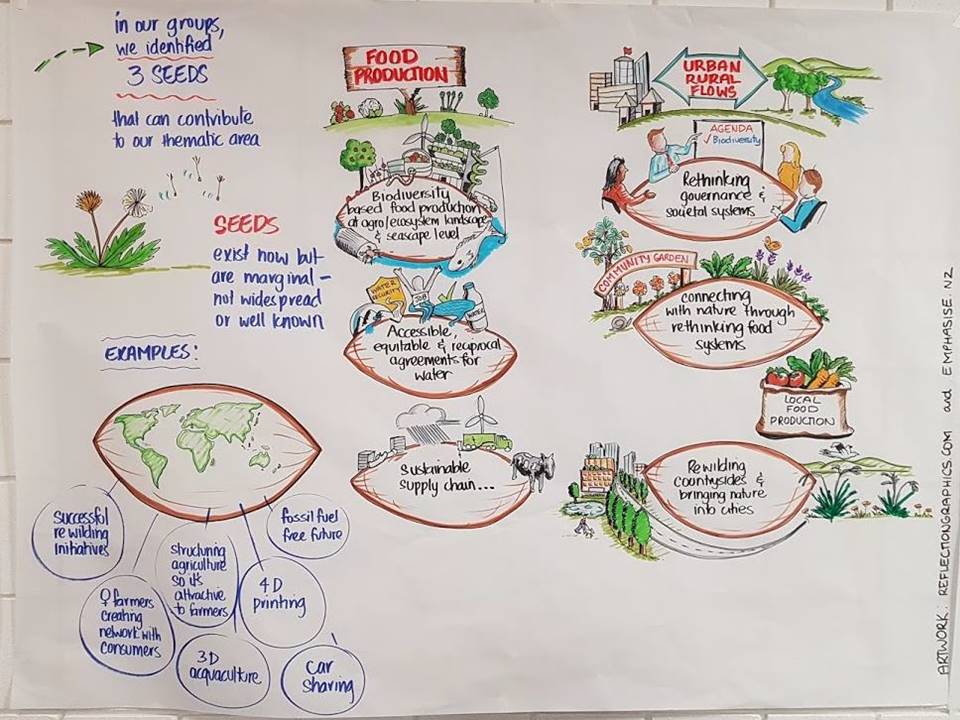 in our groups,
we identified
3 SEEDS
that can contribute
to our thematic area
SEEDS
exist now but
are marginal –
not widespread
or well known
EXAMPLES:
successful
re wilding
initiatives
♀ farmers
creating
network with
consumers
structuring
agriculture
so it's
attractive
to farmers
3D
acquaculture
4D
printing
fossil fuel
free future
car
sharing
FOOD
PRODUCTION
Biodiversity
based food production
at agro/ecosystem landscape
& seascape level
WATER
SECURITY
JOB
WATER
Accessible,
equitable & reciprocal
agreements for
water
Sustainable
supply chain...
URBAN
RURAL
FLOWS
AGENDA
✓ Biodiversity
Rethinking
governance &
societal systems
COMMUNITY GARDEN
connecting
with nature through
rethinking food
systems
LOCAL
FOOD
PRODUCTION
Rewilding
countrysides &
bringing nature
into cities
ARTWORK: REFLECTIONGRAPHICS.COM and EMPHASISE.NZ